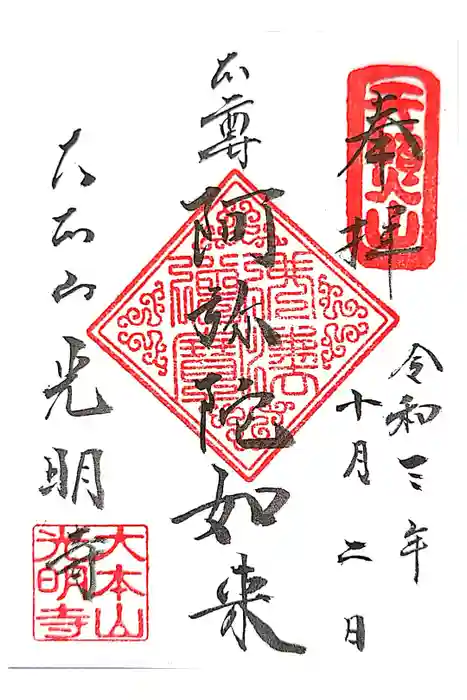 奉拝
令和三年
十月二日
本尊
阿弥陀如来
大本山光明寺
大本山
光明寺